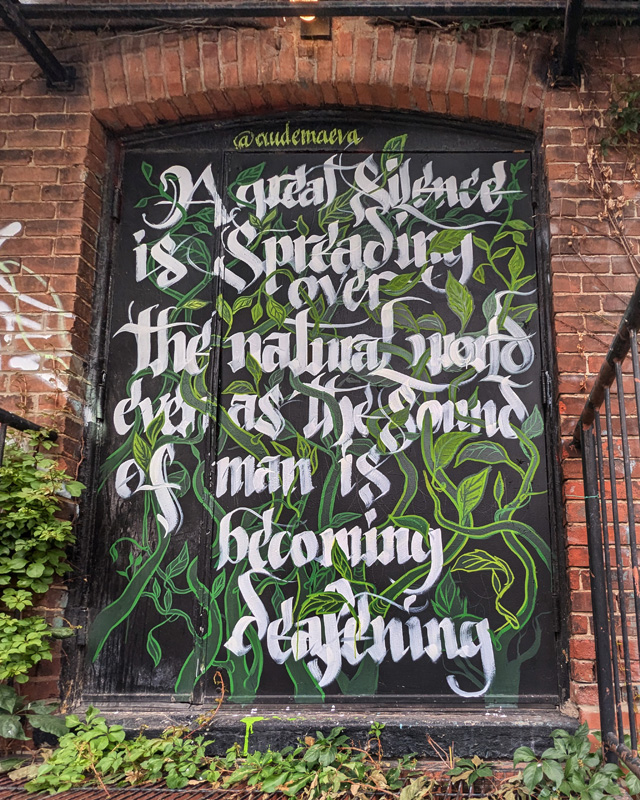 @audemaeva
A great Silence
is Spreading
over
the natural world
even as the Sound
of man is
becoming
deafening